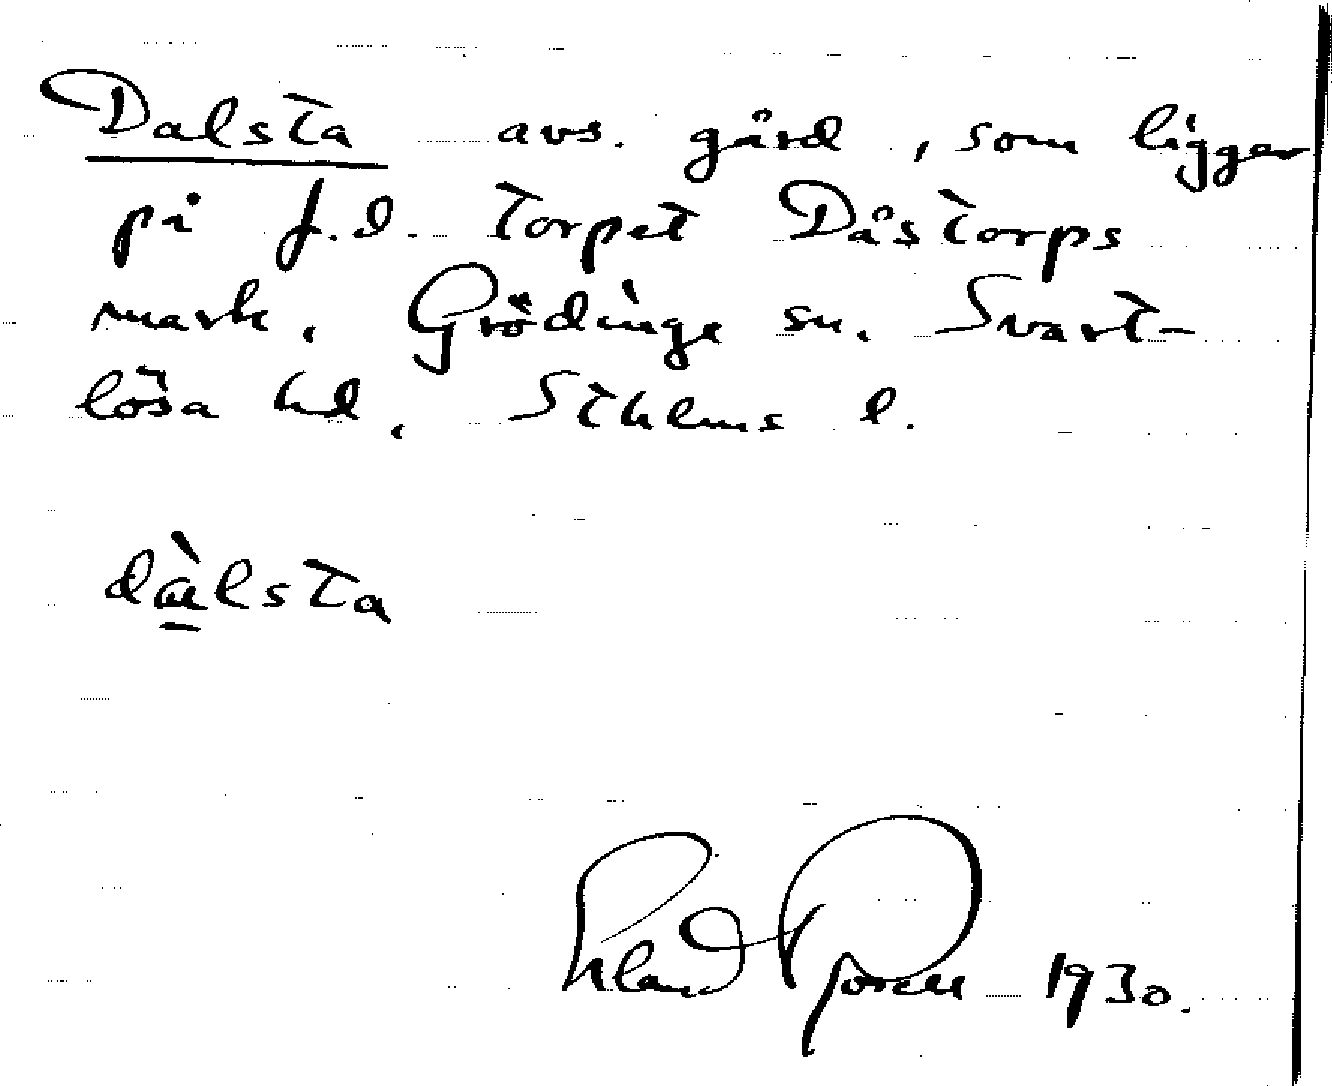 Dalsta avs. gård, som ligger
på f.d. torpet Dåstorps
mark. Grödinge sn. Svart-
lösa hd. Sthlms l.
dàlsta
1930.